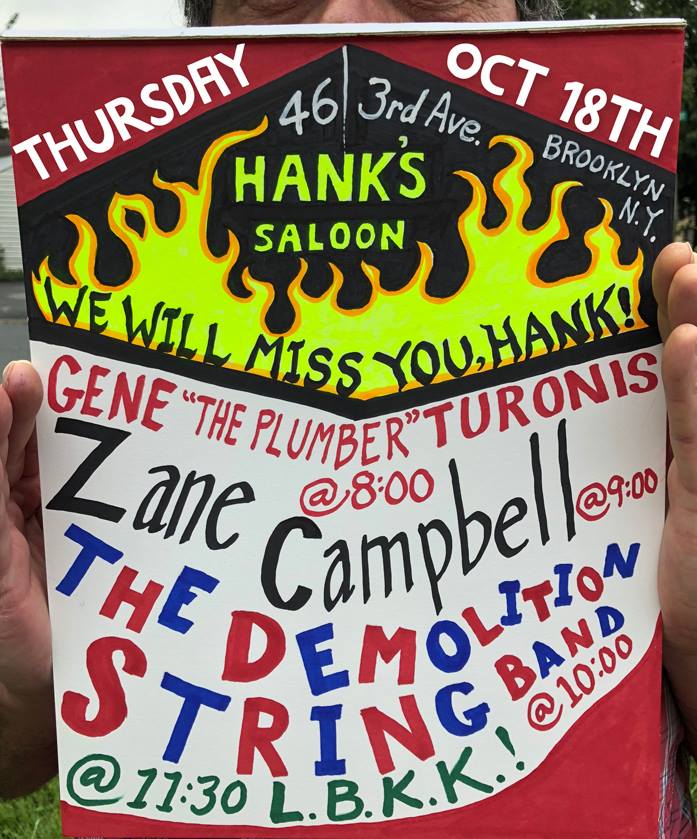 THURSDAY
OCT 18TH
46 3rd Ave.
BROOKLYN
N.Y.
HANK'S
SALOON
WE WILL MISS YOU, HANK!
GENE "THE PLUMBER" TURONIS
@8:00
Zane Campbell @9:00
THE DEMOLITION
STRING BAND
@10:00
@11:30 L.B.K.K.!